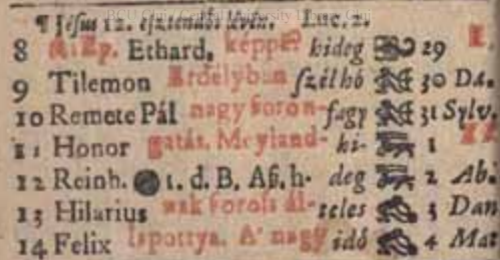 ¶ Jésus 12. esztendős lévén. Luc. 2.
8 Ethard. képpe hideg 29
9 Tilemon Erdélyban szél hó 30 Da.
10 Remete Pál nagy soron- fagy 31 Sylv.
11 Honor gatás. Meyland- hi- 1
12 Reinh. 1. d. B. Aß. h. deg 2 Ab.
13 Hilarius nak soros ál- teles 3 Dan
14 Felix lapottya. A' nagy idő 4 Mat